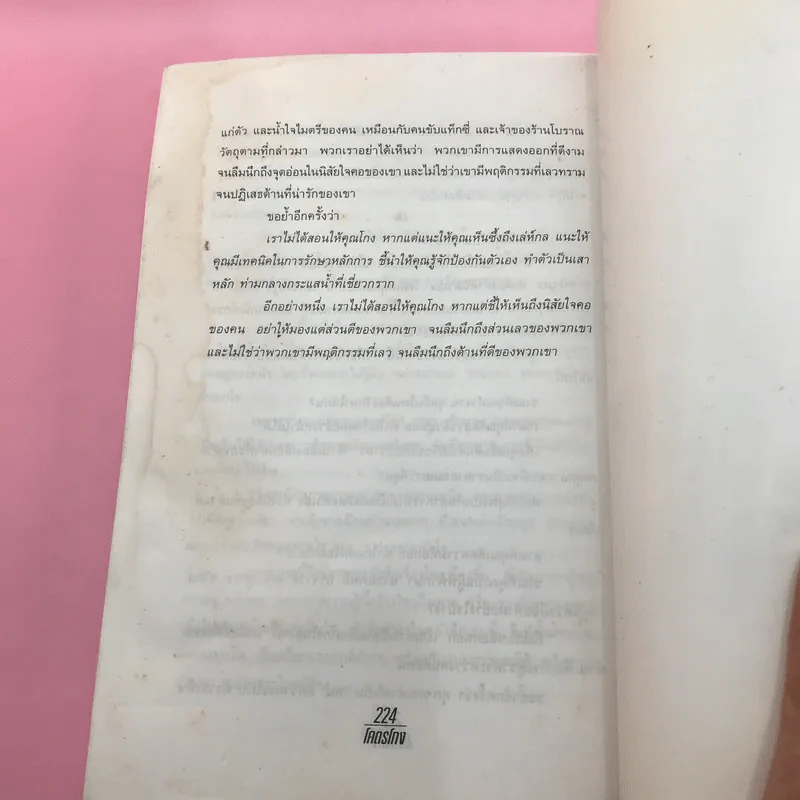 แก่ตัว และน้ำใจไมตรีของคน เหมือนกับคนขับแท็กซี่ และเจ้าของร้านโบราณ
วัตถุตามที่กล่าวมา พวกเราอย่าได้เห็นว่า พวกเขามีการแสดงออกที่ดีงาม
จนลืมนึกถึงจุดอ่อนในนิสัยใจคอของเขา และไม่ใช่ว่าเขามีพฤติกรรมที่เลวทราม
จนปฏิเสธด้านที่น่ารักของเขา
ขอย้ำอีกครั้งว่า
เราไม่ได้สอนให้คุณโกง หากแต่แนะให้คุณเห็นซึ้งถึงเล่ห์กล แนะให้
คุณมีเทคนิคในการรักษาหลักการ ชี้นำให้คุณรู้จักป้องกันตัวเอง ทำตัวเป็นเสา
หลัก ท่ามกลางกระแสน้ำที่เชี่ยวกราก
อีกอย่างหนึ่ง เราไม่ได้สอนให้คุณโกง หากแต่ชี้ให้เห็นถึงนิสัยใจคอ
ของคน อย่าให้มองแต่ส่วนดีของพวกเขา จนลืมนึกถึงส่วนเลวของพวกเขา
และไม่ใช่ว่าพวกเขามีพฤติกรรมที่เลว จนลืมนึกถึงด้านที่ดีของพวกเขา
224
โคตรโกง